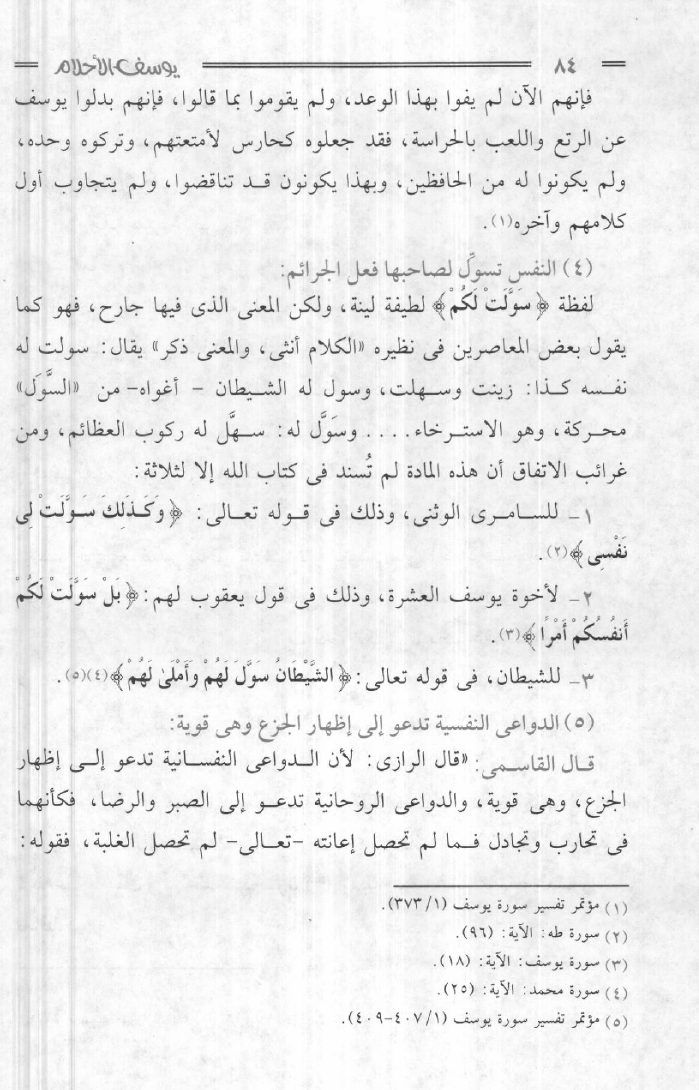 ٨٤ يوسف الأحلام
فإنهم الآن لم يفوا بهذا الوعد، ولم يقوموا بما قالوا، فإنهم بدلوا يوسف
عن الرتع واللعب بالحراسة، فقد جعلوه كحارس لأمتعتهم، وتركوه وحده،
ولم يكونوا له من الحافظين، وبهذا يكونون قد تناقضوا، ولم يتجاوب أول
كلامهم وآخره(١).
(٤) النفس تسوِّل لصاحبها فعل الجرائم:
لفظة ﴿ سَوَّلَتْ لَكُمْ﴾ لطيفة لينة، ولكن المعنى الذى فيها جارح، فهو كما
يقول بعض المعاصرين فى نظيره «الكلام أنثى، والمعنى ذكر» يقال: سولت له
نفسه كذا: زينت وسهلت، وسول له الشيطان - أغواه- من «السَّوَل»
محركة، وهو الاسترخاء.... وسَوَّل له: سهَّل له ركوب العظائم، ومن
غرائب الاتفاق أن هذه المادة لم تُسند فى كتاب الله إلا لثلاثة:
١- للسامرى الوثنى، وذلك فى قوله تعالى: ﴿ وَكَذَلِكَ سَوَّلَتْ لِى
نَفْسِى﴾(٢).
٢- لأخوة يوسف العشرة، وذلك فى قول يعقوب لهم: ﴿ بَلْ سَوَّلَتْ لَكُمْ
أَنفُسُكُمْ أَمْرًا ﴾(٣).
٣- للشيطان، فى قوله تعالى: ﴿ الشَّيْطَانُ سَوَّلَ لَهُمْ وَأَمْلَىٰ لَهُمْ﴾(٤)(٥).
(٥) الدواعى النفسية تدعو إلى إظهار الجزع وهى قوية:
قال القاسمى: «قال الرازى: لأن الدواعى النفسانية تدعو إلى إظهار
الجزع، وهى قوية، والدواعى الروحانية تدعو إلى الصبر والرضا، فكأنهما
فى تحارب وتجادل فما لم تحصل إعانته -تعالى- لم تحصل الغلبة، فقوله:
(١) مؤتمر تفسير سورة يوسف (٣٧٣/١).
(٢) سورة طه: الآية: (٩٦).
(٣) سورة يوسف: الآية: (١٨).
(٤) سورة محمد: الآية: (٢٥).
(٥) مؤتمر تفسير سورة يوسف (٤٠٧/١-٤٠٩).